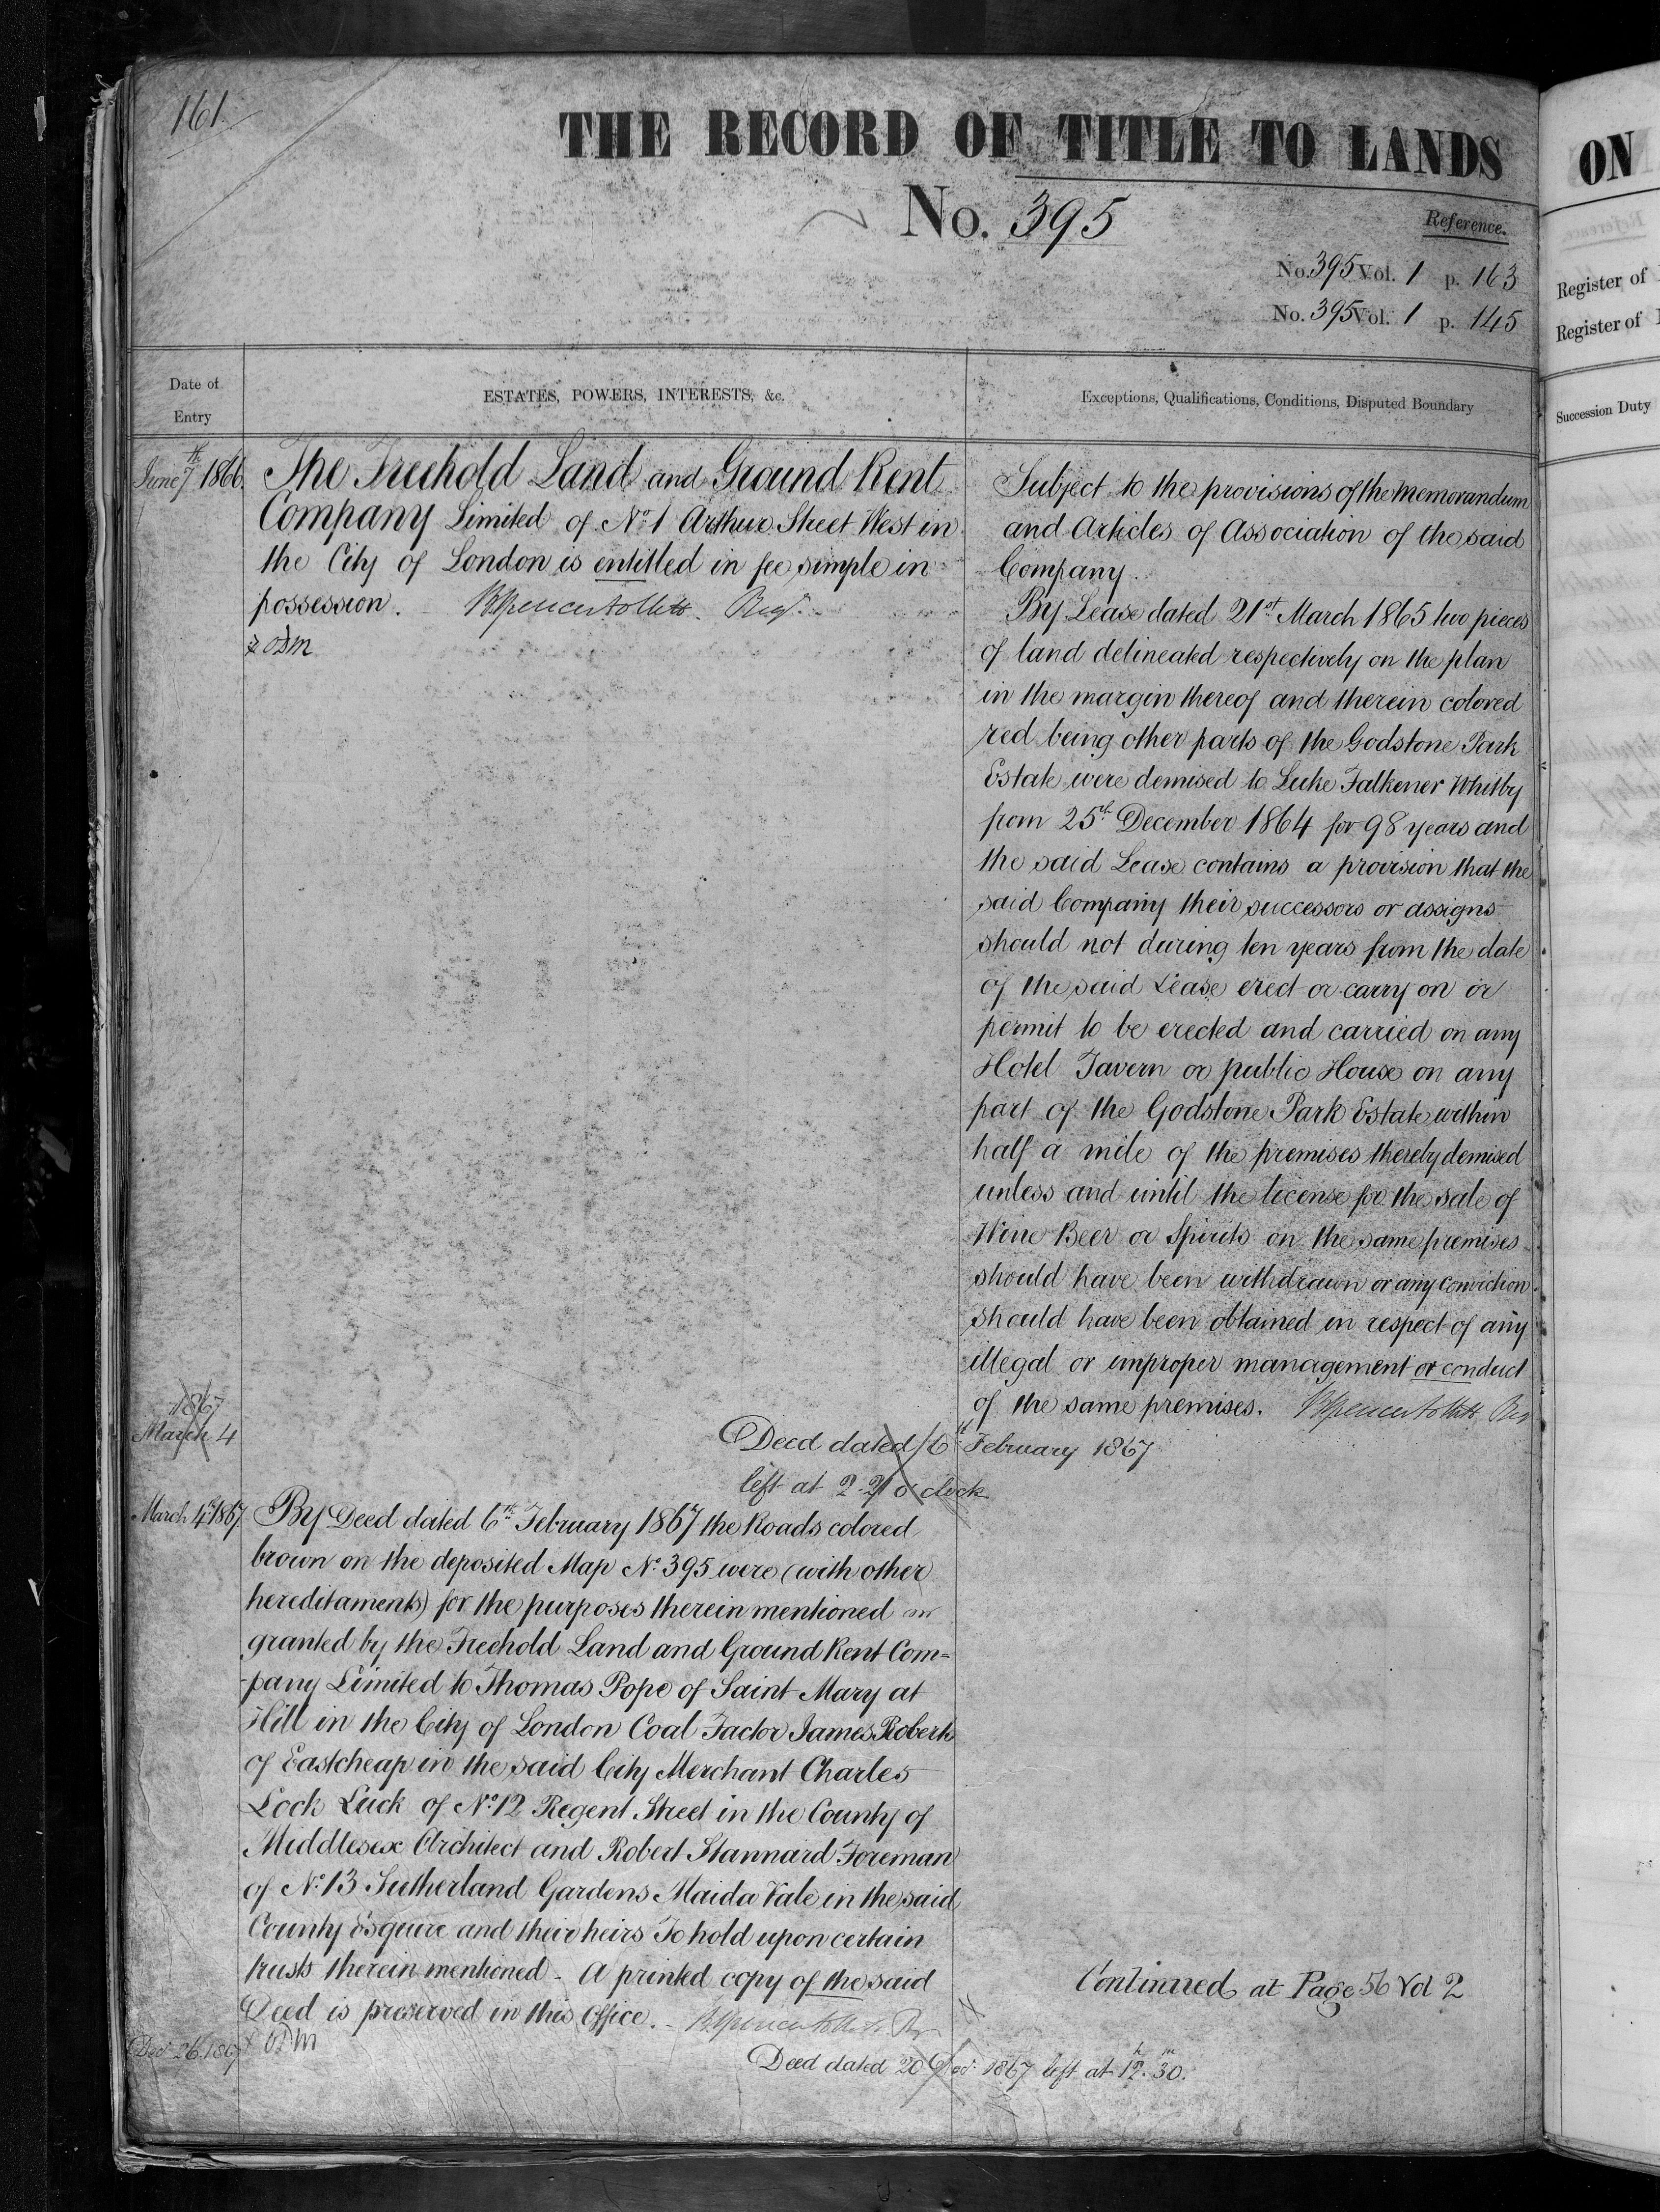 161
THE RECORD OF TITLE TO LANDS
No. 395
Reference.
No. 395 Vol. 1 p. 163
No. 395 Vol. 1 p. 145
Date of
Entry
ESTATES, POWERS, INTERESTS, &c.
Exceptions, Qualifications, Conditions, Disputed Boundary
June 7th 1866.
The Freehold Land and Ground Rent
Company Limited of No. 1 Arthur Street West in
the City of London is entitled in fee simple in
possession.
Subject to the provisions of the Memorandum
and Articles of Association of the said
Company.
By Lease dated 21st March 1865 two pieces
of land delineated respectively on the plan
in the margin thereof and therein colored
red being other parts of the Godstone Park
Estate were demised to Luke Falkener Whitby
from 25th December 1864 for 98 years and
the said Lease contains a provision that the
said Company their successors or assigns
should not during ten years from the date
of the said Lease erect or carry on or
permit to be erected and carried on any
Hotel Tavern or public House on any
part of the Godstone Park Estate within
half a mile of the premises thereby demised
unless and until the license for the sale of
Wine Beer or Spirits on the same premises
should have been withdrawn or any conviction
should have been obtained in respect of any
illegal or improper management or conduct
of the same premises.
1867
March 4
Deed dated 6th February 1867
left at 2.21 o'clock
March 4th 1867.
By Deed dated 6th February 1867 the Roads colored
brown on the deposited Map No. 395 were (with other
hereditaments) for the purposes therein mentioned
granted by the Freehold Land and Ground Rent Com=
=pany Limited to Thomas Pope of Saint Mary at
Hill in the City of London Coal Factor James Roberts
of Eastcheap in the said City Merchant Charles
Lock Luck of No. 12 Regent Street in the County of
Middlesex Architect and Robert Stannard Foreman
of No. 13 Sutherland Gardens Maida Vale in the said
County Esquire and their heirs To hold upon certain
trusts therein mentioned - A printed copy of the said
Deed is preserved in this Office. -
Continued at Page 56 Vol 2
Dec 26. 1867
Deed dated 20 Dec. 1867 left at 12h. 30m.
ON
Register of
Register of
Succession Duty